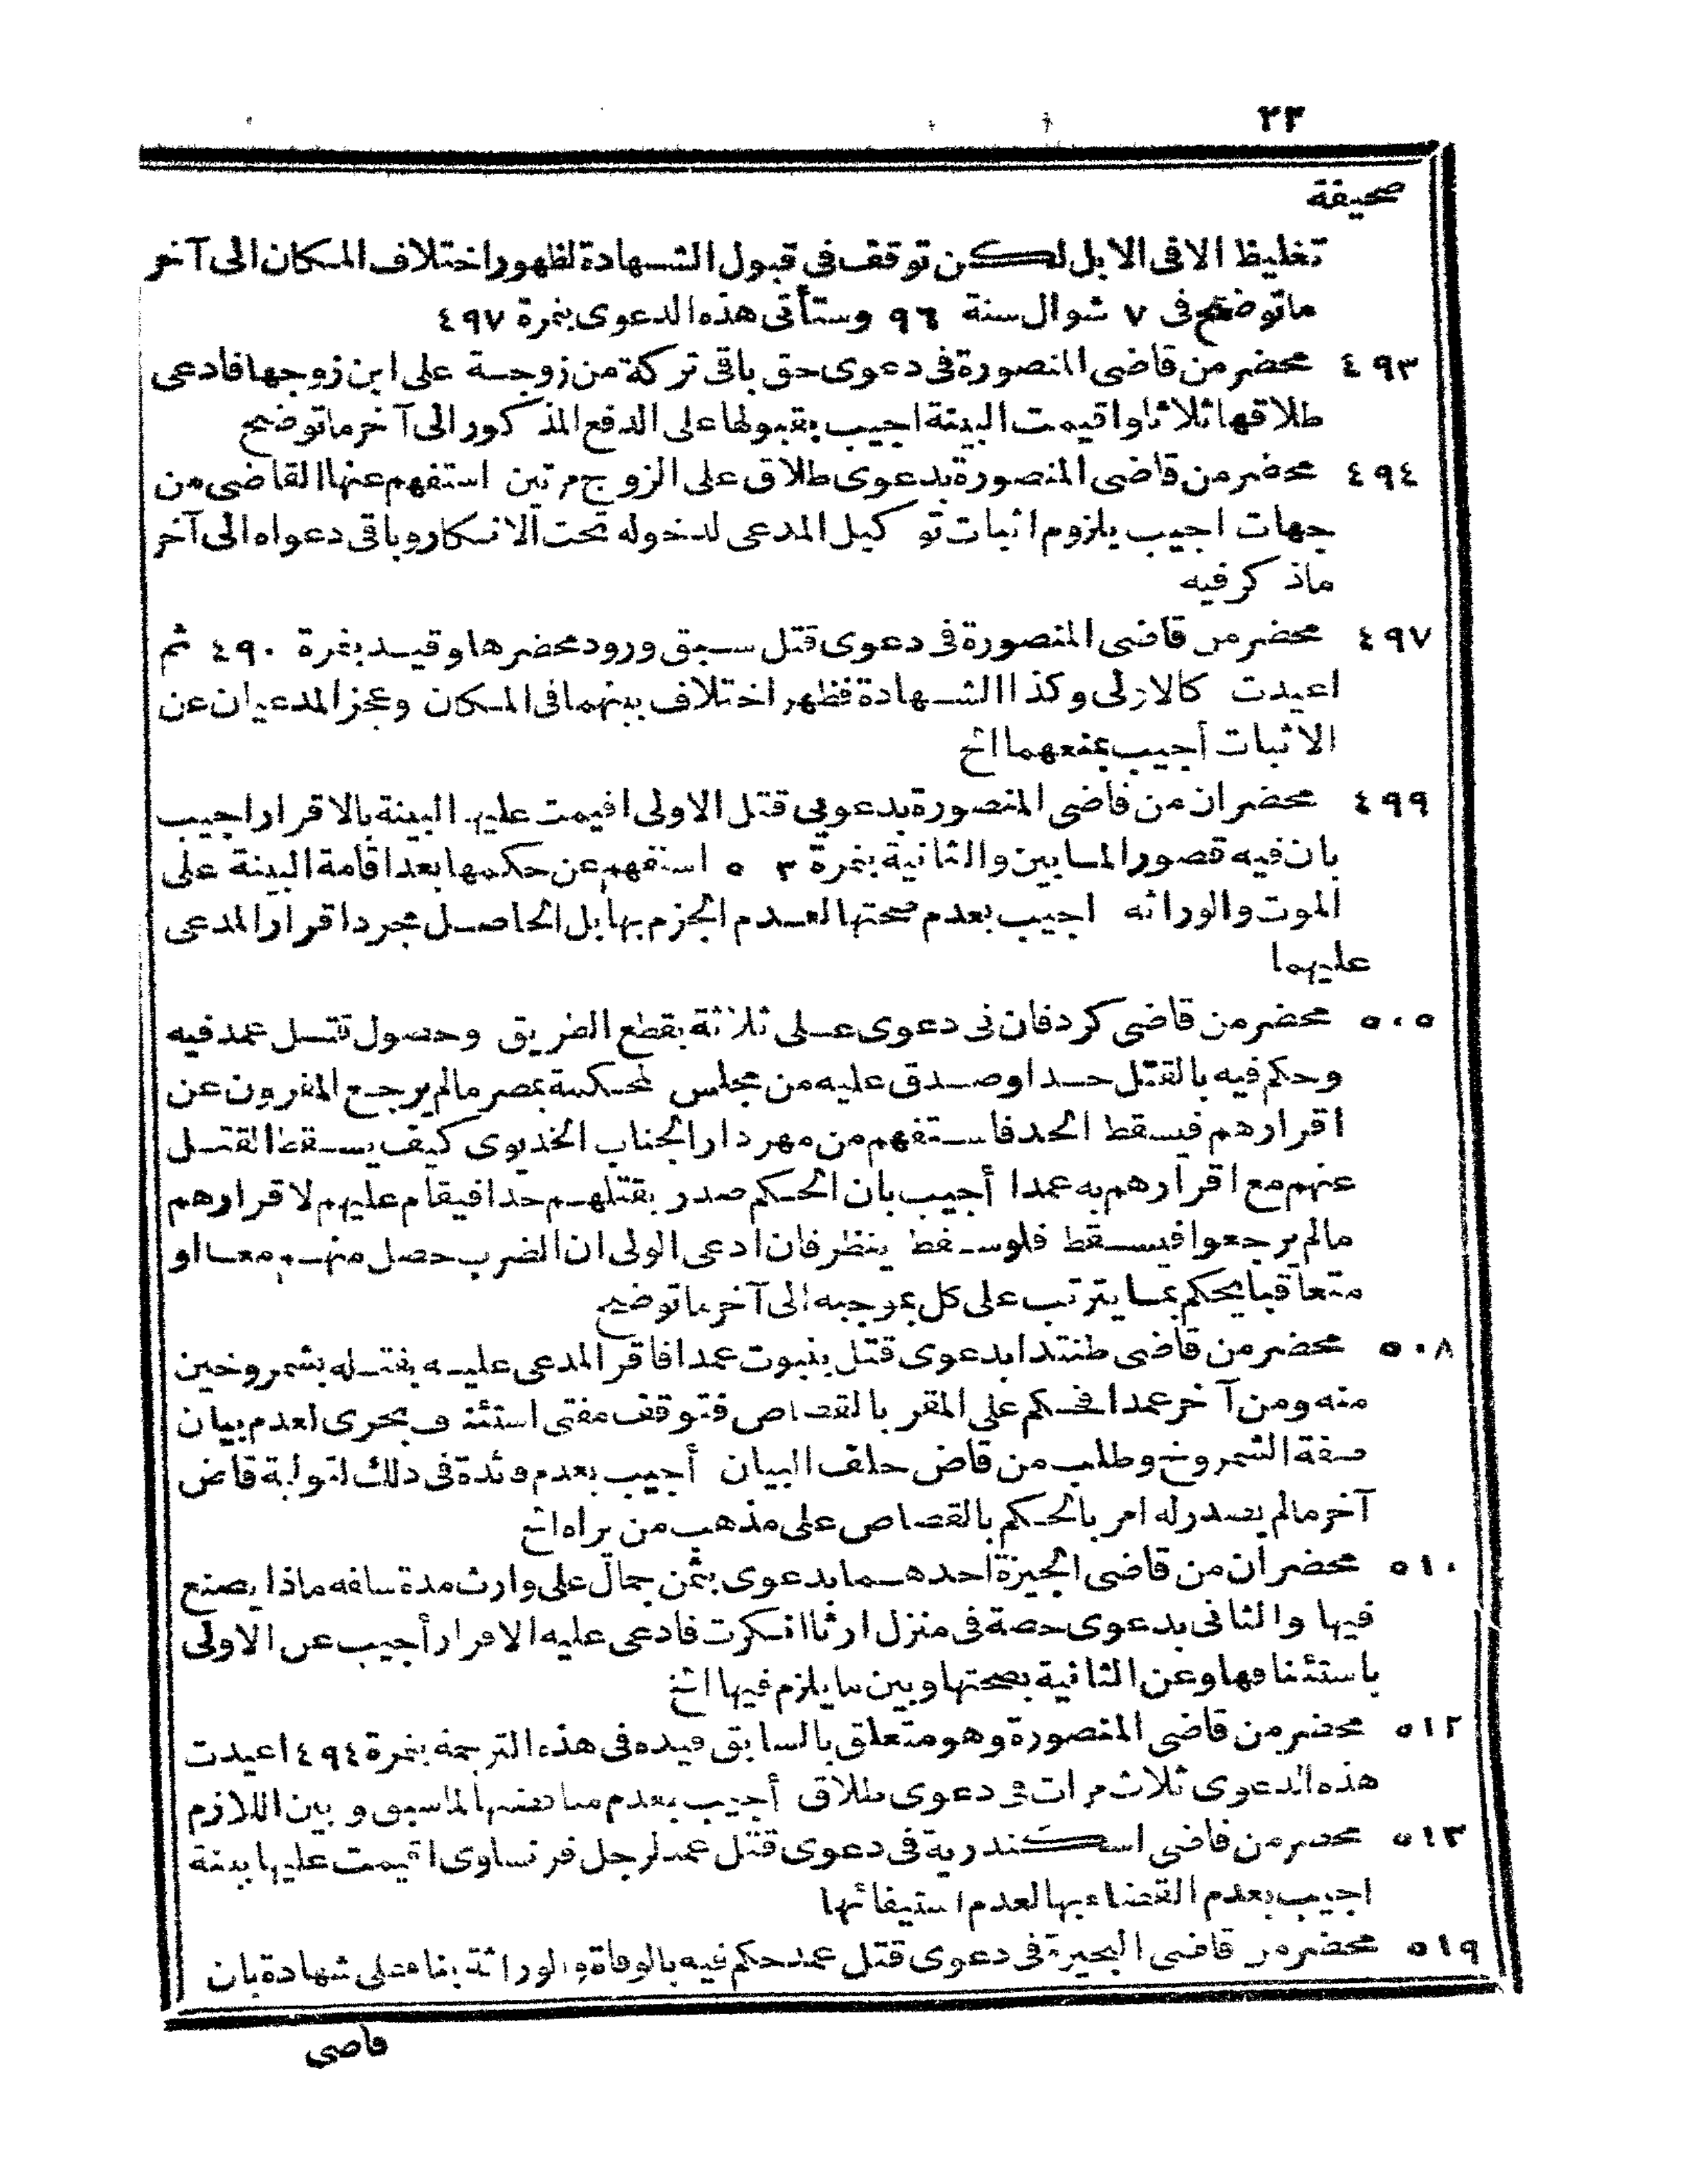 ٢٣
صحيفة
تغليظ الا فى الابل لكن توقف فى قبول الشهادة لظهور اختلاف المكان الى آخر
ماتوضح فى ٧ شوال سنة ٩٦ وستأتى هذه الدعوى بنمرة ٤٩٧
٤٩٣ محضر من قاضى المنصورة فى دعوى حق باقى تركة من زوجة على ابن زوجها فادعى
طلاقها ثلاثا واقيمت البينة اجيب بقبولها على الدفع المذكور الى آخر ماتوضح
٤٩٤ محضر من قاضى المنصورة بدعوى طلاق على الزوج مرتين استفهم عنها القاضى من
جهات اجيب يلزوم اثبات توكيل المدعى لدخوله تحت الانكار وباقى دعواه الى آخر
ماذكر فيه
٤٩٧ محضر من قاضى المنصورة فى دعوى قتل سبق ورود محضرها وقيد بنمرة ٤٩٠ ثم
اعيدت كالاولى وكذا الشهادة فظهر اختلاف بينهما فى المكان وعجز المدعيان عن
الاثبات أجيب بمنعهما الخ
٤٩٩ محضران من قاضى المنصورة بدعويى قتل الاولى اقيمت عليها البينة بالاقرار اجيب
بان فيه قصور المابين والثانية بنمرة ٥٠٣ استفهم عن حكمها بعد اقامة البينة على
الموت والوراثه اجيب بعدم صحتها لعدم الجزم بها بل الحاصل مجرد اقرار المدعى
عليهما
٥٠٥ محضر من قاضى كردفان فى دعوى على ثلاثة بقطع الطريق وحصول قتل عمد فيه
وحكم فيه بالقتل حدا وصدق عليه من مجلس لمحكمة بمصر مالم يرجع المقرون عن
اقرارهم فيسقط الحد فاستفهم من مهردار الجناب الخديوى كيف يسقط القتل
عنهم مع اقرارهم به عمدا أجيب بان الحكم صدر بقتلهم حدا فيقام عليهم لاقرارهم
مالم يرجعوا فيسقط فلو سقط ينظر فان ادعى الولى ان الضرب حصل منهم معا او
متعاقبا يحكم بما يترتب على كل بموجبه الى آخر ماتوضح
٥٠٨ محضر من قاضى طنتدا بدعوى قتل بنبوت عمدا فاقر المدعى عليه بقتله بشمروخين
منه ومن آخر عمدا فحكم على المقر بالقصاص فتوقف مفتى استئناف بحرى لعدم بيان
صفة الشمروخ وطلب من قاض حلف البيان أجيب بعدم فائدة فى ذلك لتولية قاض
آخر مالم يصدر له امر بالحكم بالقصاص على مذهب من يراه الخ
٥١٠ محضران من قاضى الجيزة احدهما بدعوى بثمن جمال على وارث مدة سافه ماذا يصنع
فيها والثانى بدعوى حصة فى منزل ارثا انكرت فادعى عليه الاقرار أجيب عن الاولى
باستئنافها وعن الثانية بصحتها وبين ما يلزم فيها الخ
٥١٢ محضر من قاضى المنصورة وهو متعلق بالسابق قيده فى هذه الترجمة بنمرة ٤٩٤ اعيدت
هذه الدعوى ثلاث مرات فى دعوى طلاق أجيب بعدم مناقضتها لماسبق وبين اللازم
٥١٣ محضر من قاضى اسكندرية فى دعوى قتل عمد لرجل فرنساوى اقيمت عليها بينة
اجيب بعدم القضاء بها لعدم استيفائها
٥١٩ محضر من قاضى البحيرة فى دعوى قتل عمد حكم فيه بالوفاة والوراثة بناء على شهادة بان
قاضى